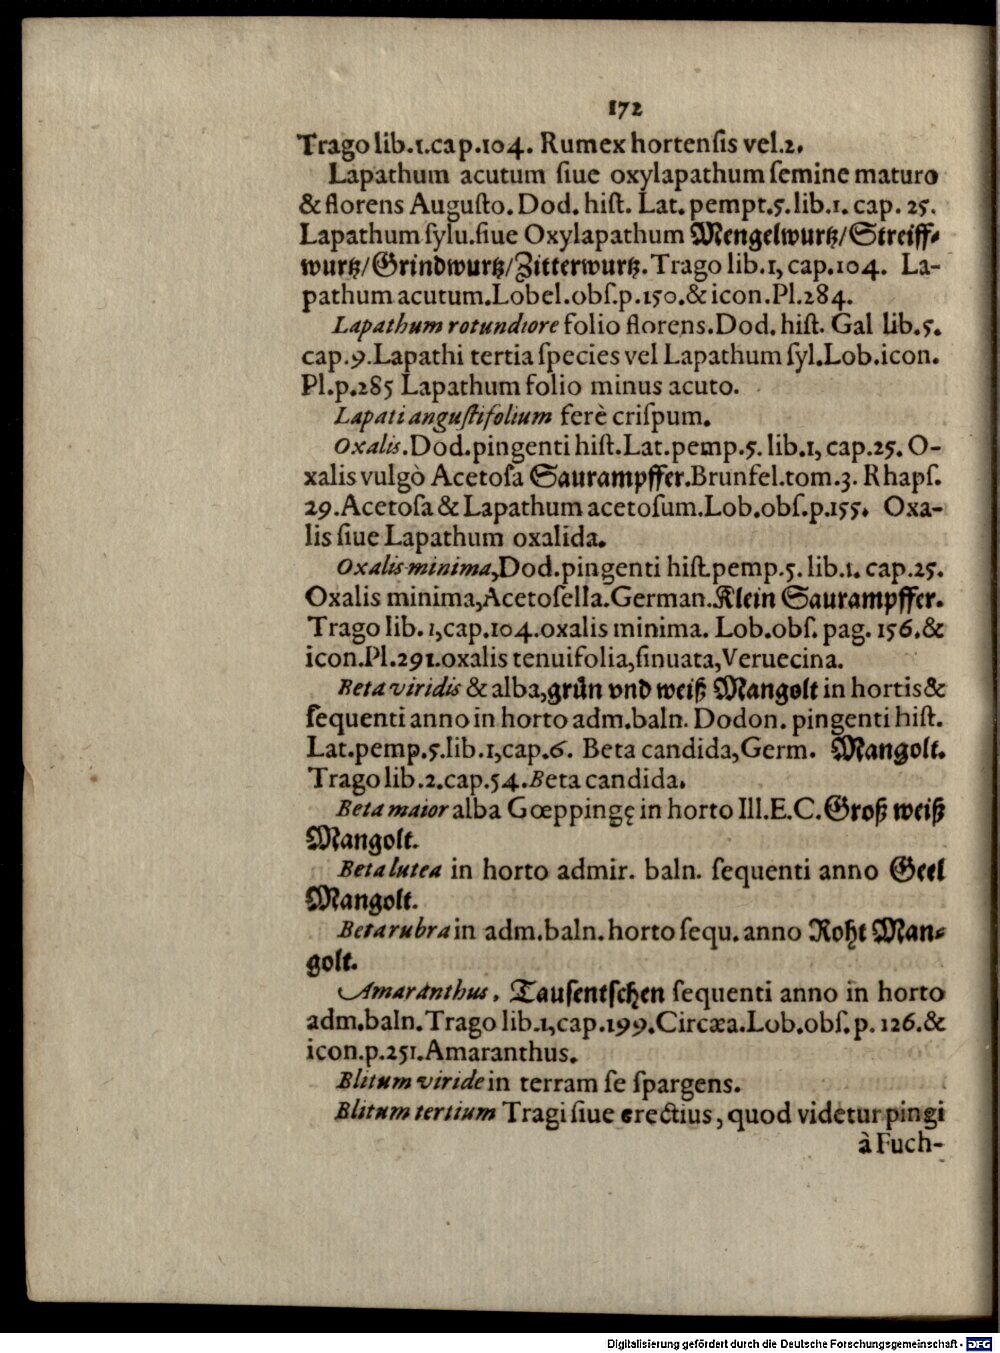 172
Trago lib.1.cap.104. Rumex hortenſis vel.2.
Lapathum acutum ſiue oxylapathum ſemine maturo
& florens Auguſto. Dod. hiſt. Lat. pempt.5.lib.1. cap. 25.
Lapathum ſylu.ſiue Oxylapathum Mengelwurtz/Streiff-
wurtz/Grindwurtz/Zitterwurtz. Trago lib.1, cap.104. La-
pathum acutum.Lobel.obſ.p.150.& icon.Pl.284.
Lapathum rotundiore folio florens.Dod. hiſt. Gal lib.5.
cap.9.Lapathi tertia ſpecies vel Lapathum ſyl.Lob.icon.
Pl.p.285 Lapathum folio minus acuto.
Lapati anguſtifolium ferè criſpum.
Oxalis.Dod.pingenti hiſt.Lat.pemp.5. lib.1, cap.25. O-
xalis vulgò Acetoſa Saurampffer.Brunfel.tom.3. Rhapſ.
29.Acetoſa & Lapathum acetoſum.Lob.obſ.p.155. Oxa-
lis ſiue Lapathum oxalida.
Oxalis minima,Dod.pingenti hiſt.pemp.5. lib.1. cap.25.
Oxalis minima,Acetoſella.German.Klein Saurampffer.
Trago lib. 1,cap.104.oxalis minima. Lob.obſ. pag. 156.&
icon.Pl.291.oxalis tenuifolia,ſinuata,Veruecina.
Beta viridis & alba,grün vnd weiß Mangolt in hortis &
ſequenti anno in horto adm.baln. Dodon. pingenti hiſt.
Lat.pemp.5.lib.1,cap.6. Beta candida,Germ. Mangolt.
Trago lib.2.cap.54.Beta candida.
Beta maior alba Gœppingę in horto Ill.E.C.Groß weiß
Mangolt.
Beta lutea in horto admir. baln. ſequenti anno Geel
Mangolt.
Beta rubra in adm.baln.horto ſequ. anno Roht Man-
golt.
Amaranthus. Tauſentſchen ſequenti anno in horto
adm.baln.Trago lib.1,cap.199.Circæa.Lob.obſ.p. 126.&
icon.p.251.Amaranthus.
Blitum viride in terram ſe ſpargens.
Blitum tertium Tragi ſiue erectius, quod videtur pingi
à Fuch-
Digitalisierung gefördert durch die Deutsche Forschungsgemeinschaft - DFG